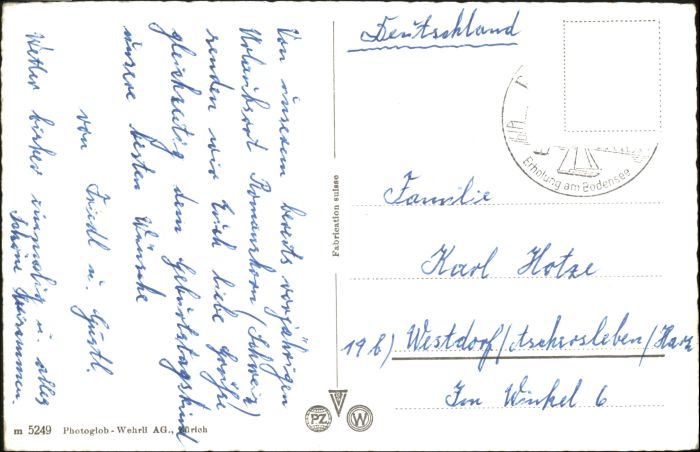 Von unserem bereits vorjährigen
Urlaubsort Romanshorn (Schweiz)
senden wir Euch liebe Grüße
gleichzeitig dem Geburtstagskind
unsere besten Wünsche
von Friedl u. Gustl.
Wetter bisher einmalig u. alles
schöne
Deutschland
Erholung am Bodensee
Familie
Karl Hotze
19b) Westdorf/Aschersleben/Harz
Im Winkel 6
Fabrication suisse
PZ
W
m 5249 Photoglob-Wehrli AG., Zürich